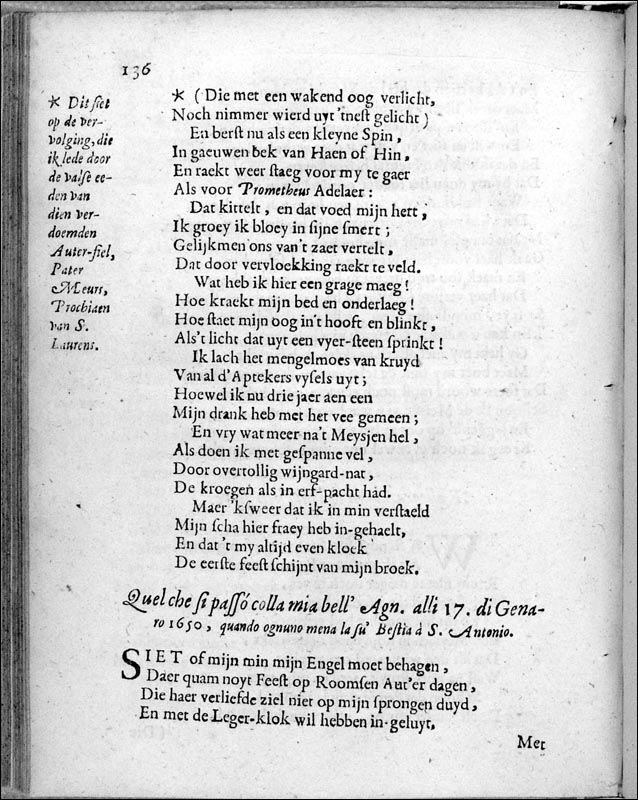 136
* Dit siet
op de ver-
volging, die
ik lede door
de valse ee-
den van
dien ver-
doemden
Auter-fiel,
Pater
Meurs,
Prochiaen
van S.
Laurens.
* (Die met een wakend oog verlicht,
Noch nimmer wierd uyt 'tnest gelicht)
En berst nu als een kleyne Spin,
In gaeuwen bek van Haen of Hin,
En raekt weer staeg voor my te gaer
Als voor Prometheus Adelaer:
Dat kittelt, en dat voed mijn hert,
Ik groey ik bloey in sijne smert;
Gelijkmen ons van't zaet vertelt,
Dat door vervloekking raekt te veld.
Wat heb ik hier een grage maeg!
Hoe kraekt mijn bed en onderlaeg!
Hoe staet mijn oog in't hooft en blinkt,
Als't licht dat uyt een vyer-steen sprinkt!
Ik lach het mengelmoes van kruyd
Van al d'Aptekers vysels uyt;
Hoewel ik nu drie jaer aen een
Mijn drank heb met het vee gemeen;
En vry wat meer na't Meysjen hel,
Als doen ik met gespanne vel,
Door overtollig wijngard-nat,
De kroegen als in erf-pacht had.
Maer 'ksweer dat ik in min verstaeld
Mijn scha hier fraey heb in-gehaelt,
En dat 't my altijd even kloek
De eerste feest schijnt van mijn broek.
Quel che si passó colla mia bell' Agn. alli 17. di Gena-
ro 1650, quando ognuno mena la su' Bestia à S. Antonio.
SIET of mijn min mijn Engel moet behagen,
Daer quam noyt Feest op Roomsen Aut'er dagen,
Die haer verliefde ziel niet op mijn sprongen duyd,
En met de Leger-klok wil hebben in-geluyt,
Met